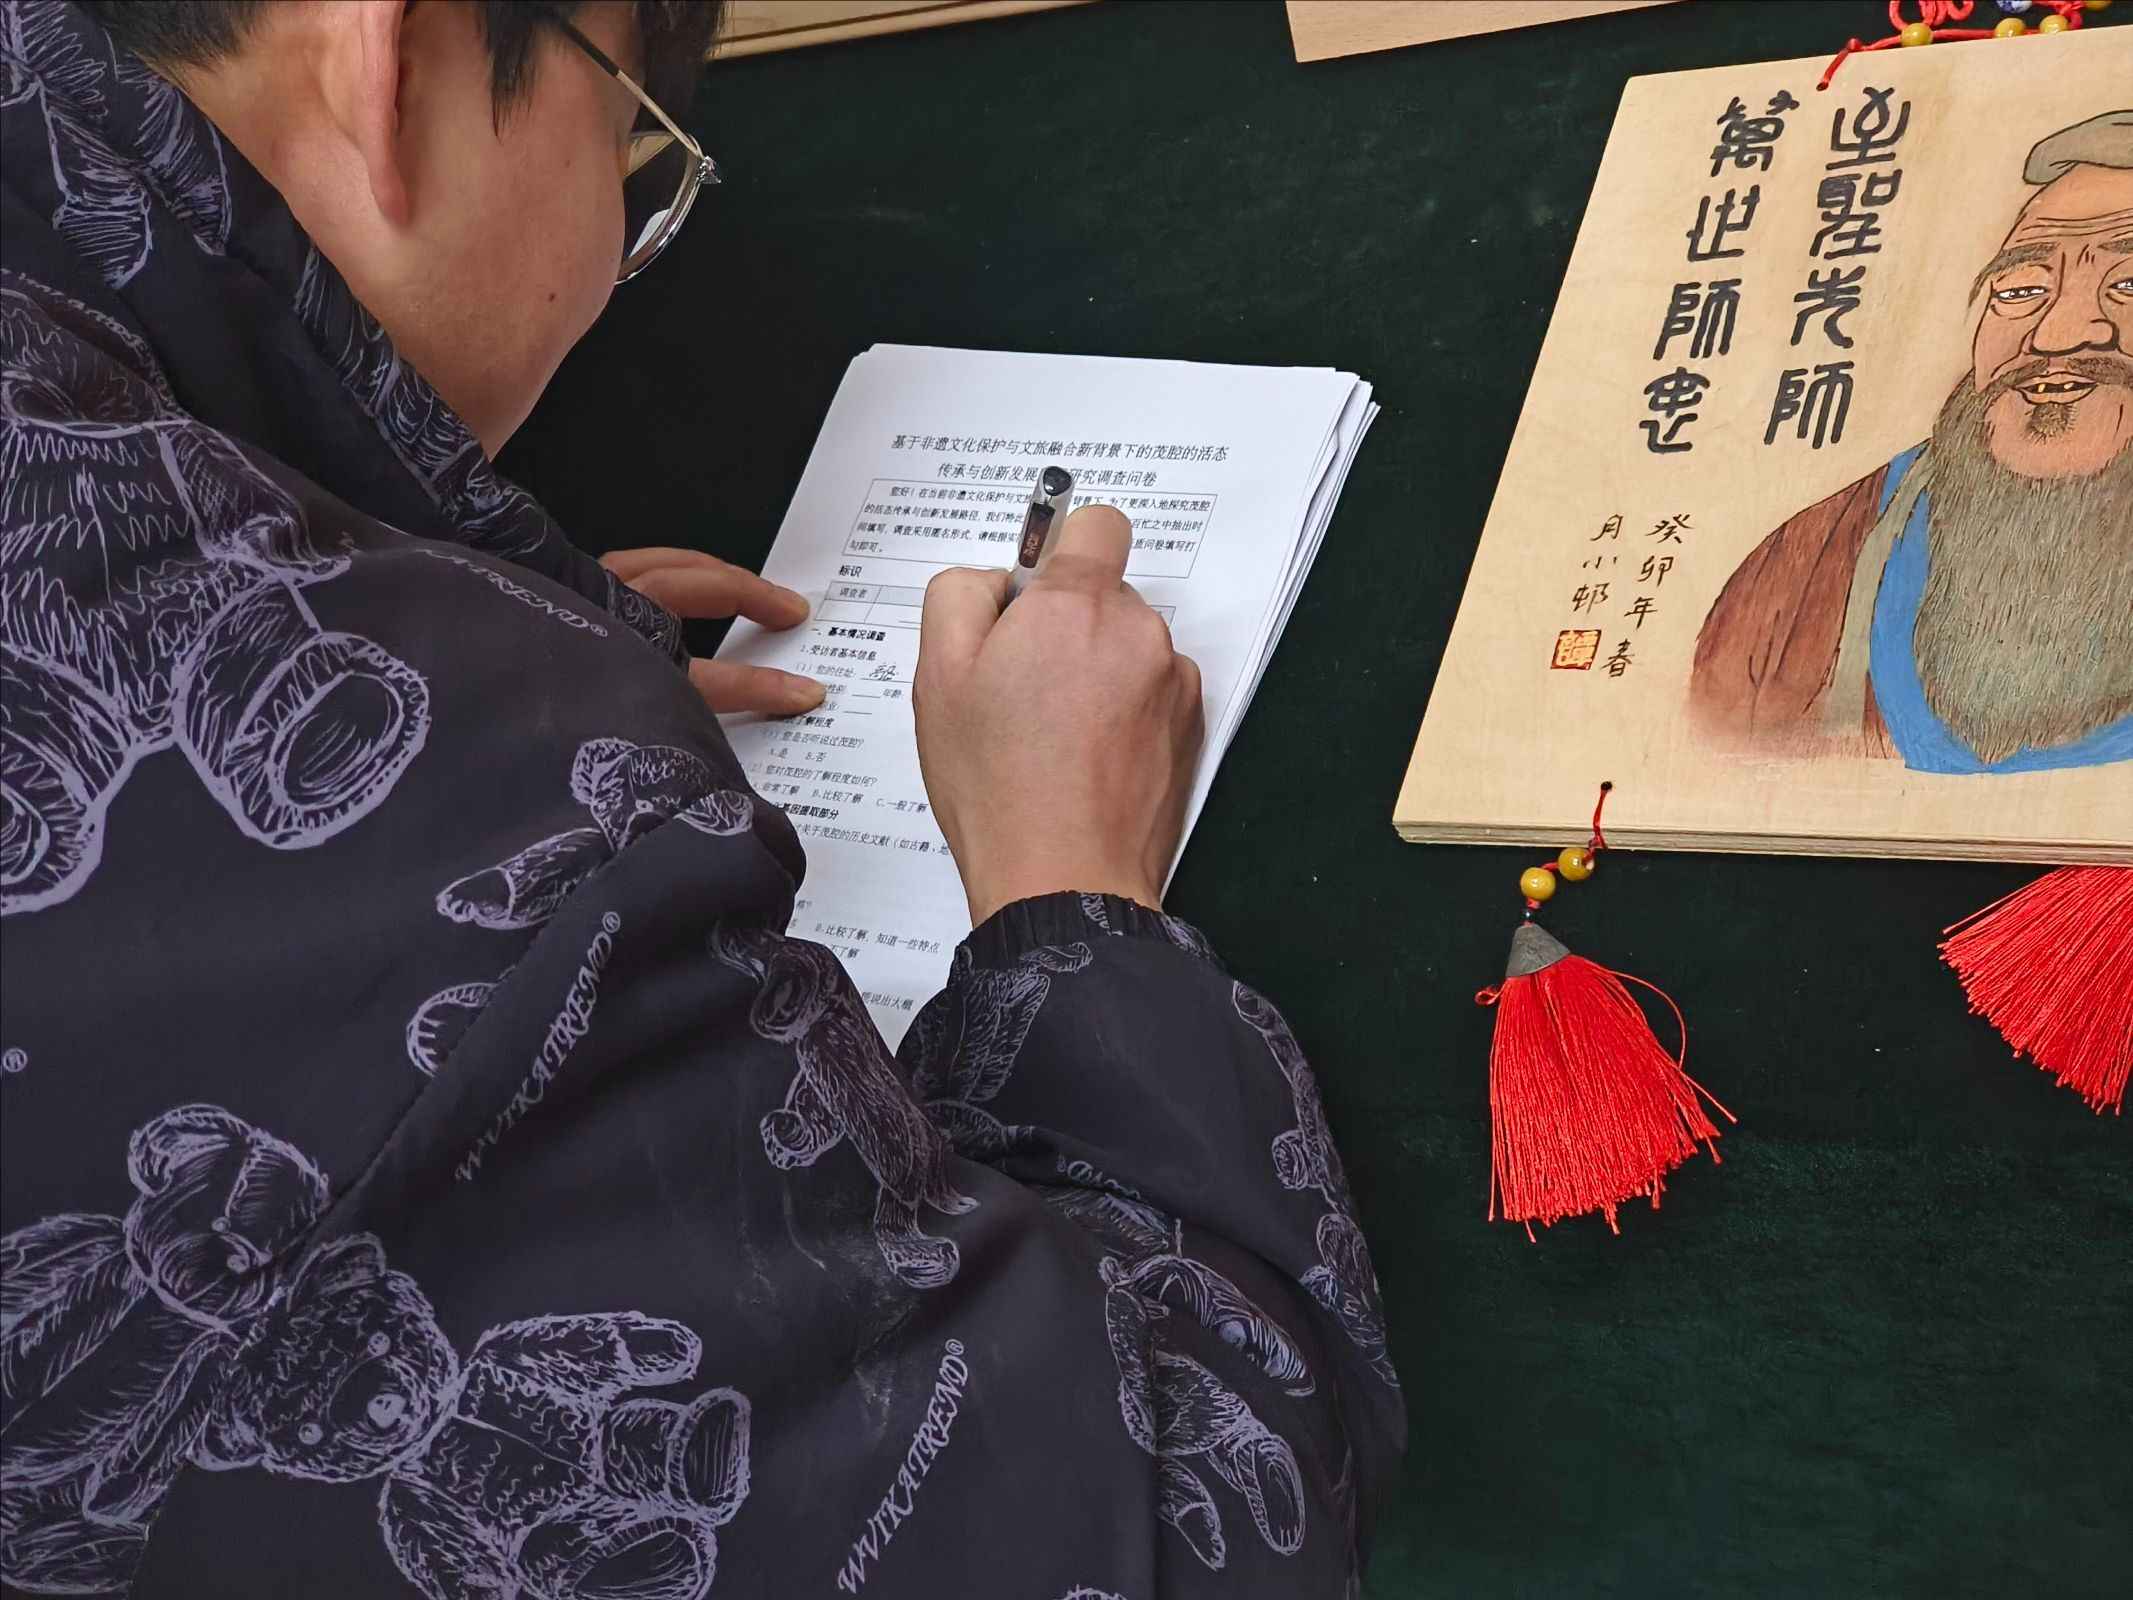 基于非遗文化保护与文旅融合新背景下的茂腔的活态
传承与创新发展 研究调查问卷
您好!在当前非遗文化保护与文旅 背景下,为了更深入地探究茂腔
的活态传承与创新发展路径,我们特此 百忙之中抽出时
间填写,调查采用匿名形式,请根据实 质问卷填写打
勾即可。
标识
调查者
一、基本情况调查
1.受访者基本信息
(1)您的住址:
性别: 年龄:
业:
了解程度
(1)您是否听说过茂腔?
A.是 B.否
(2)您对茂腔的了解程度如何?
A.非常了解 B.比较了解 C.一般了解
基因提取部分
关于茂腔的历史文献(如古籍、地
B.比较了解,知道一些特点
不了解
能说出大概
至聖先師
萬世師表
癸卯年春
月小邨
WVTKATREND®
WVTKATREND®
TREND®